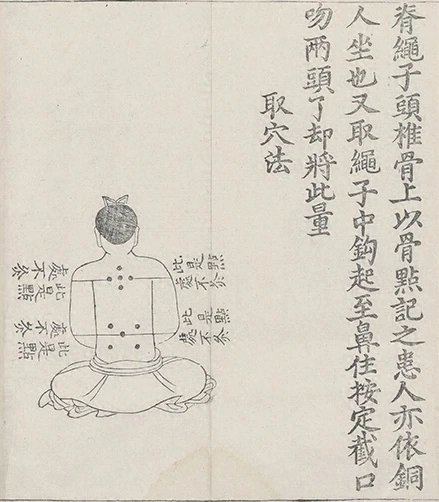 脊繩子頭椎骨上以骨點記之患人亦依銅
人坐也又取繩子中鈎起至鼻住按定截口
吻兩頭了却將此量
取穴法
此是點
處不灸
此是點
處不灸
此是點
處不灸
此是點
處不灸